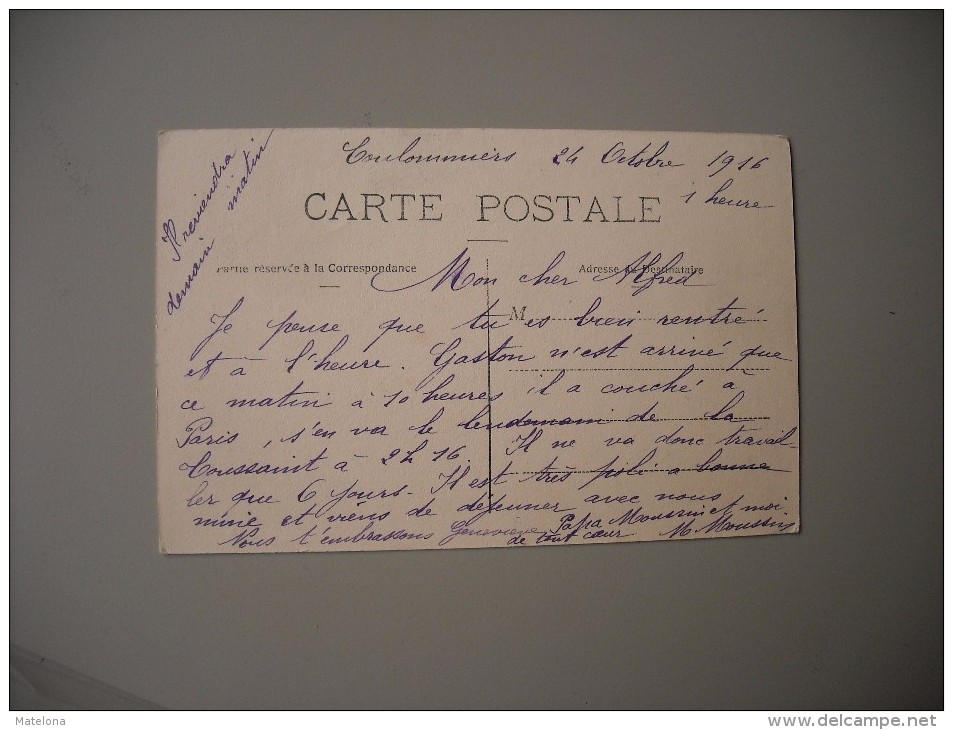 Coulommiers 24 Octobre 1916
1 heure
Il reviendra
demain matin
CARTE POSTALE
Partie réservée à la Correspondance
Adresse du Destinataire
M
Mon cher Alfred
Je pense que tu es bien rentré
et à l'heure. Gaston n'est arrivé que
ce matin à 10 heures il a couché à
Paris, s'en va le lendemain de la
Toussaint à 2h 16. Il ne va donc travail-
ler que 6 jours. Il est très poli a bonne
mine et viens de déjeuner avec nous
Nous t'embrassons Geneviève, Papa Moussin et moi
de tout cœur M. Moussin
Matelona
http://www.delcampe.net